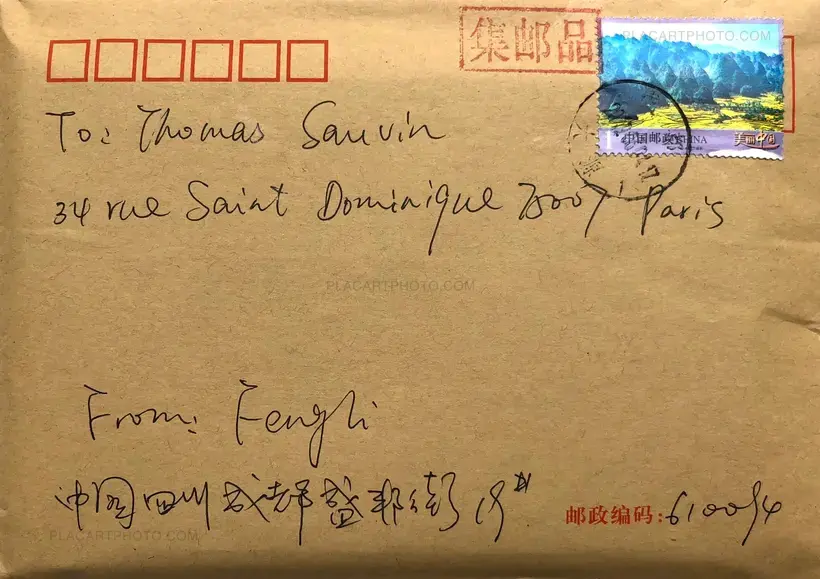 集邮品
PLACARTPHOTO.COM
中国邮政 CHINA
美丽中国
To: Thomas Sauvin
34 rue Saint Dominique 75007 Paris
PLACARTPHOTO.COM
From: Fengli
中国四川成都盛邦街19#
邮政编码:610094
PLACARTPHOTO.COM